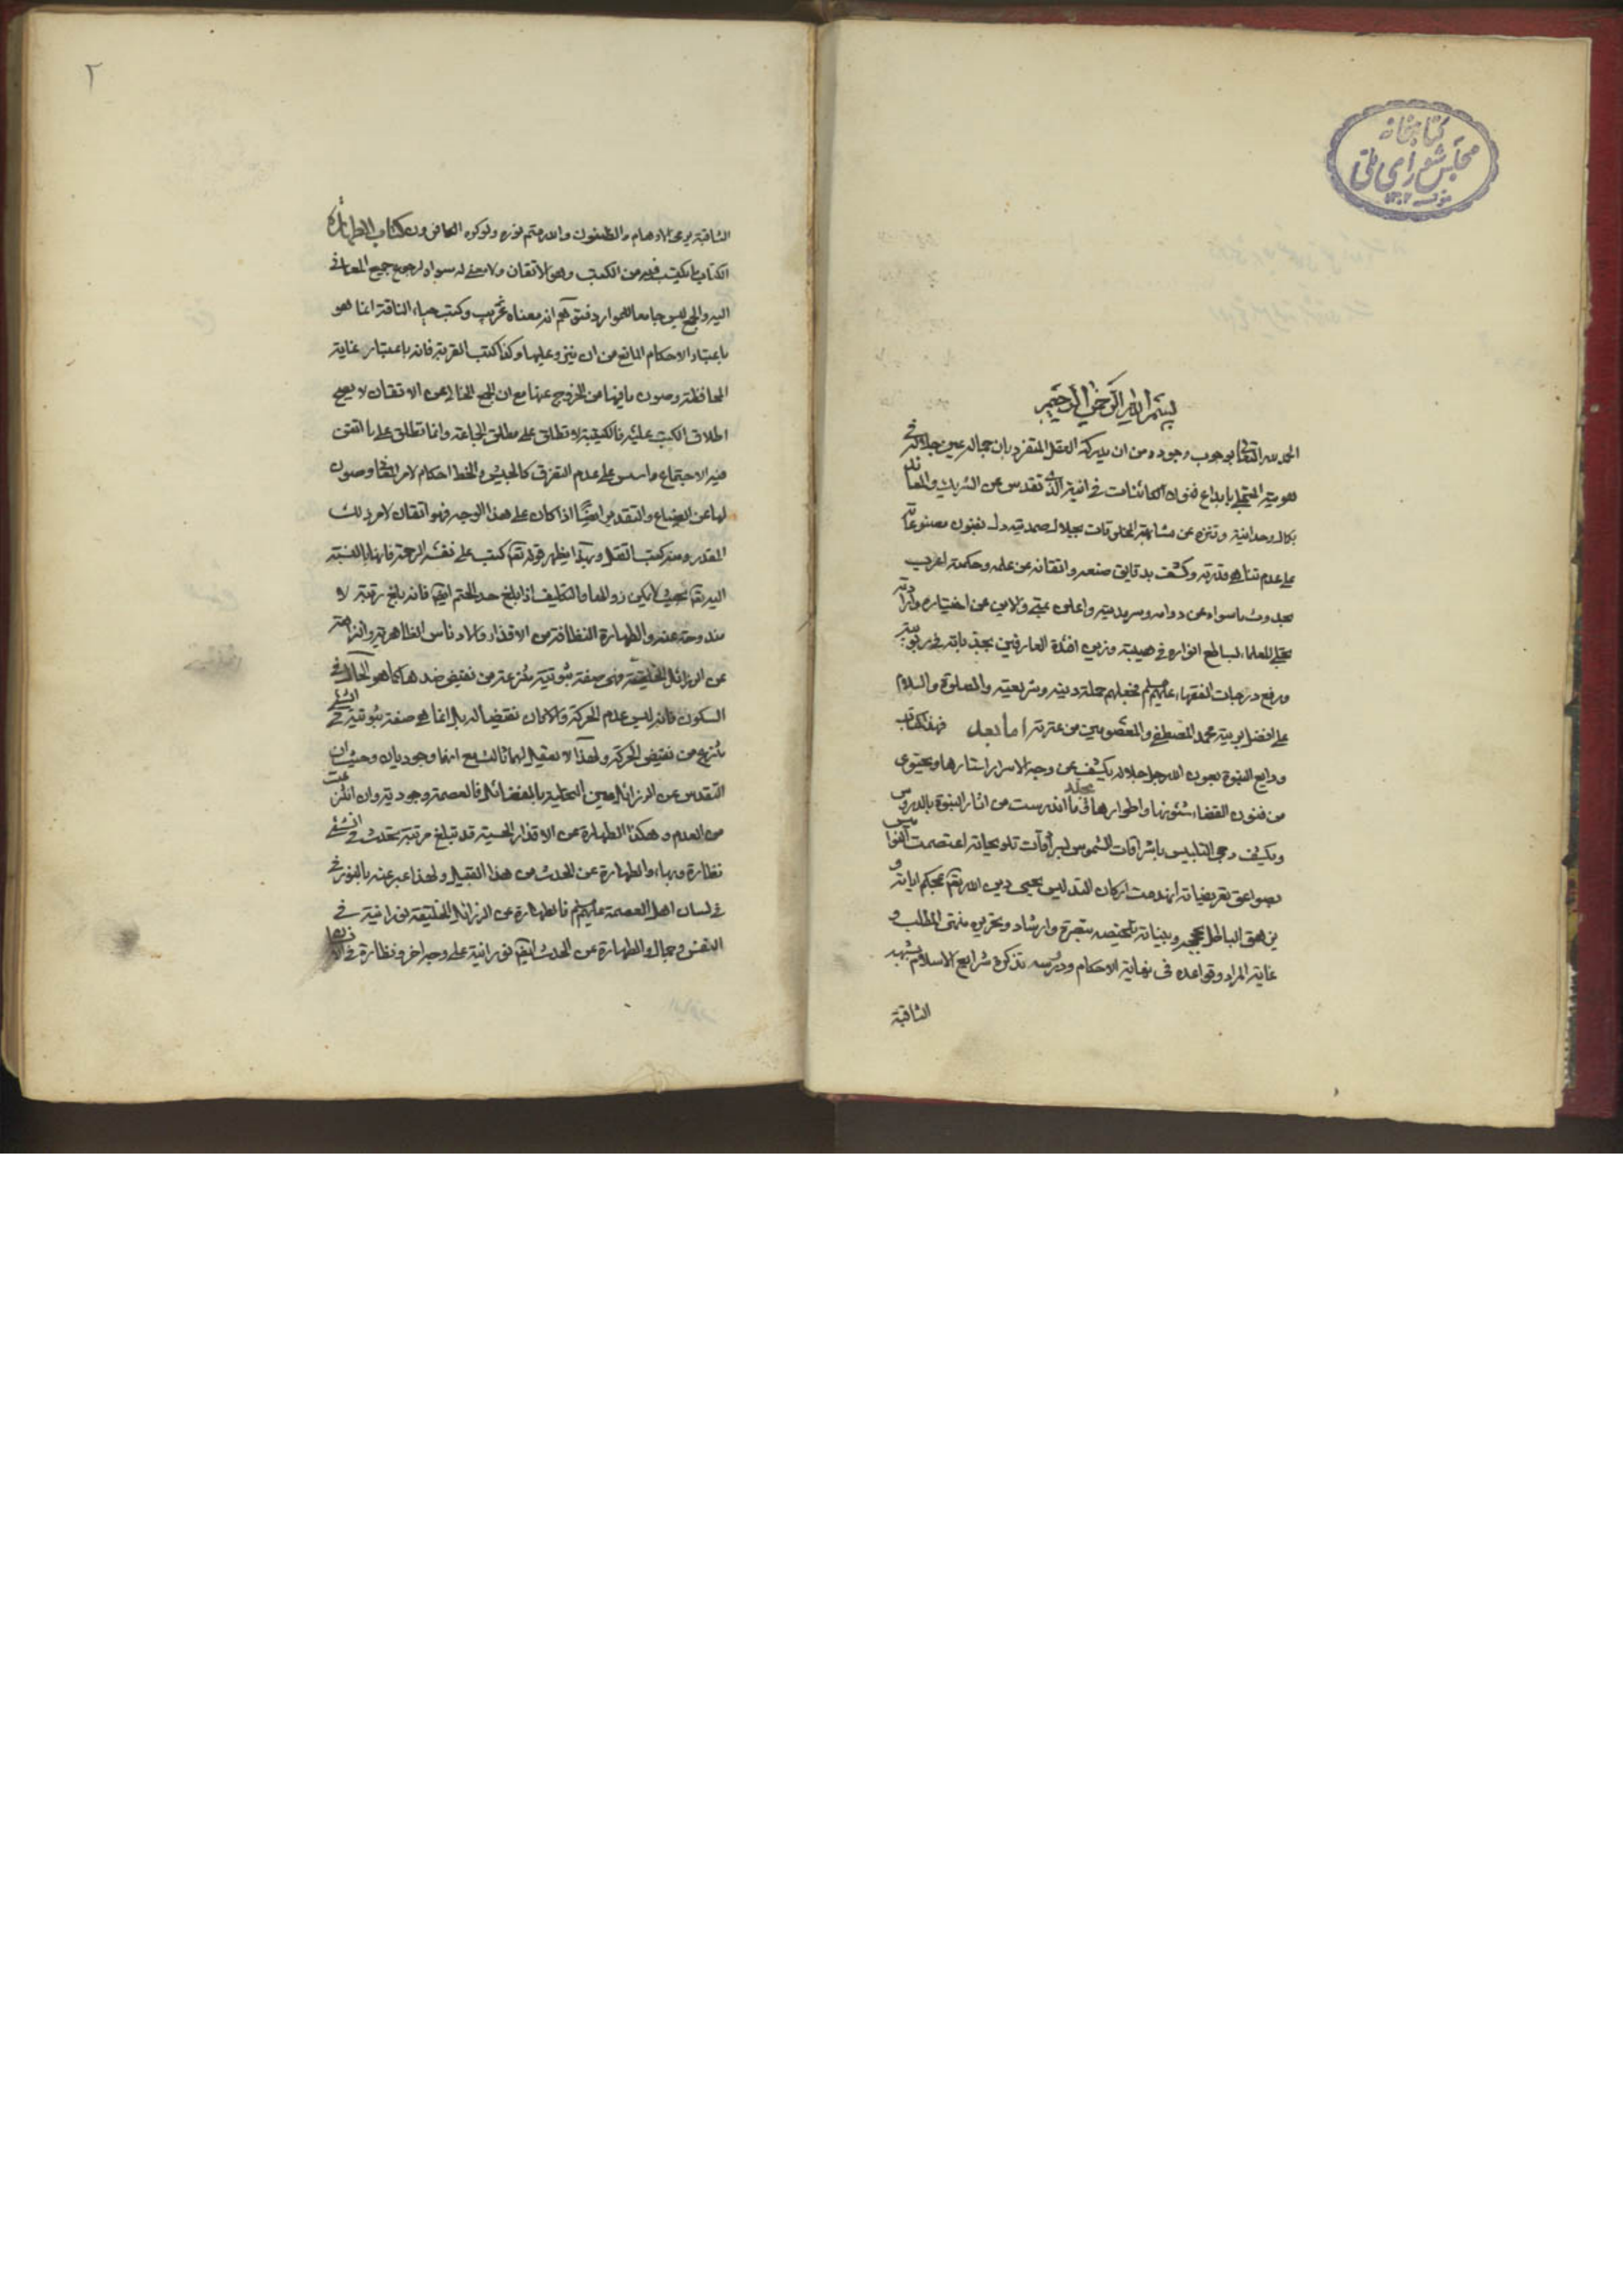 كتابخانه
مجلس شورای ملی
بسم الله الرحمن الرحيم
الحمد لله المتعالى بوجوب وجوده من ان يدركه العقل المتفرد بان جماله عين جلاله في
هويته المتجلي بابداع فنون الكائنات في انيته الذي تقدس عن الشريك والمعاند
بكمال وحدانيته وتنزه عن مشابهة المخلوقات بجلال صمديته دل بفنون مصنوعاته
على عدم تناهي قدرته وكشف بدقايق صنعه واتقانه عن علمه وحكمته اعرب
بحدوث ما سواه عن دوامه وسرمديته واعلن عن اختياره وارادته
تجلى للعلماء بسالطع انواره في وزين افئدة العارفين بجذباته في ربوبيته
ورفع درجات الفقهاء فجعلهم حملة دينه وشريعته والصلوة والسلام
على افضل بريته محمد المصطفى والمعصومين من عترته اما بعد فهذا كتاب
ودايع النبوة بعون الله جل جلاله يكشف عن وجه الاسرار استارها ويحتوي
من فنون القضاء شئونها واطوارها في ما اندرست من اثار النبوة بالدروس
ويكشف دجى التلبيس باشراقات الشموس
بصواعق تعريضاته انهدمت اركان التدليس يحيى دين الله تعالى بمحكم اياته و
يزهق الباطل بحججه وبيناته تلخيصه تبصرة وارشاد وتحريره منتهى المطلب و
غاية المراد وقواعده في نهاية الاحكام ودروسه تذكرة شرايع الاسلام
الثاقبة
٢
الثاقبة الاوهام والظنون والله متم نوره ولوكره الكافرون كتاب الطهارة
الكتاب ما يكتب فيه من الكتب وهو الاتقان ولا معنى له سواه لرجوع جميع المعاني
اليه والجمع ليس جامعا للموارد انه معناه غريب وكتب حياء الناقة انما هو
باعتبار الاحكام المانع من ان ينزى عليها وكذا كتب القربة فانه باعتبار غاية
المحافظة وصون ما فيها من الخروج عنها مع ان الجمع الخالي عن الاتقان لا يصح
اطلاق الكتب عليه فالكتيبة لا تطلق على مطلق الجماعة وانما تطلق على ما اتقن
فيه الاجتماع واسس على عدم التفرق كالجيش والخط احكام لامر وصون
لها عن الضياع والتقدير ايضا اذا كان على هذا الوجه فهو اتقان لامر ذلك
المقدر ومنه كتب القتل وبهذا يظهر قوله تعالى كتب على نفسه الرحمة فانها بالنسبة
اليه تعالى بحيث لا يكن زوالها والتكليف اذا بلغ حد الحتم ايضا فانه بلغ رتبة لا
مندوحة عنه والطهارة النظافة من الاقذار والادناس الظاهرية والنزاهة
عن الرزائل الخليقة فهي صفة ثبوتية منتزعة من نقيض ضدها كما هو الحال في
السكون فانه ليس عدم الحركة والا كان نقيضا له بل انما هي صفة ثبوتية في الشيء
تنتزع من نقيض الحركة ولهذا لا يعقل لهما ثالث مع انهما وجوديان وحيث ان
التقدس عن الرزائل عين التحلية بالفضائل فالعصمة وجودية وان انتزعت
من العدم وهكذا الطهارة عن الاقذار الحسية قد تبلغ مرتبة تحدث في الشيء
نظارة وبهاء والطهارة عن الحدث من هذا القبيل ولهذا عبر عنه بالنور
في لسان اهل العصمة فالطهارة عن الرزائل الخليقة نورانية في
النفس وجمال والطهارة عن الحدث ايضا نورانية على وجه اخر ونظارة في